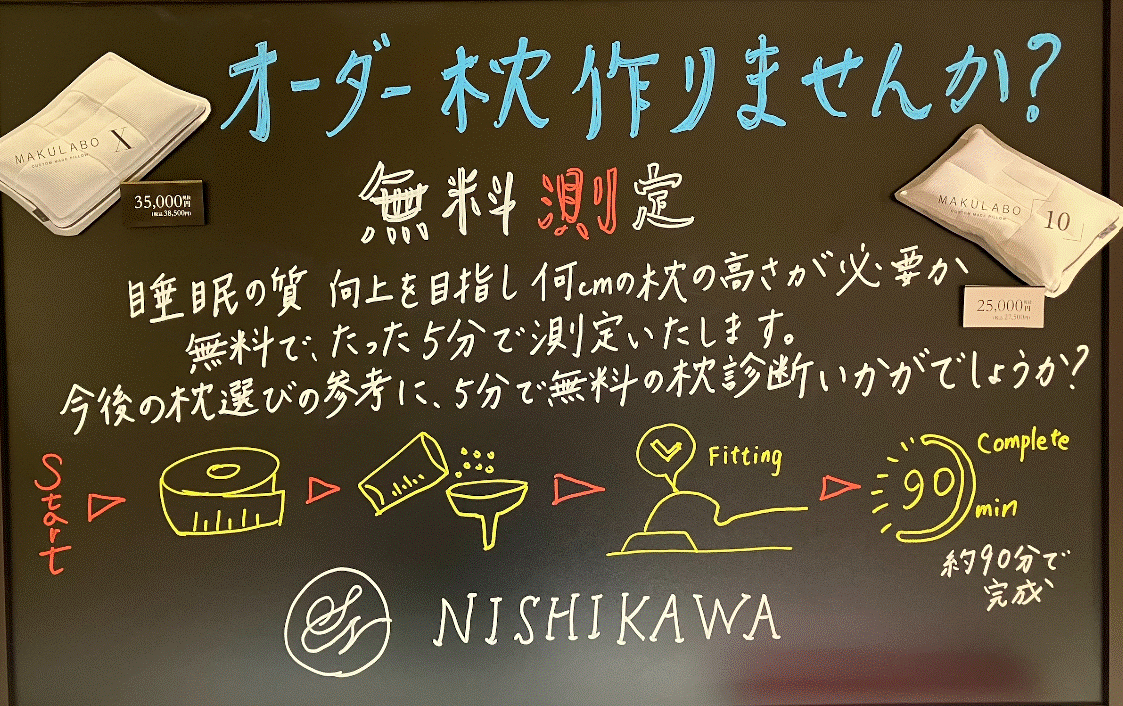 オーダー枕作りませんか?
MAKULABO X
CUSTOM MADE PILLOW
35,000円
(税込38,500円)
無料測定
MAKULABO 10
CUSTOM MADE PILLOW
25,000円
(税込27,500円)
睡眠の質 向上を目指し何cmの枕の高さが必要か
無料で、たった5分で測定いたします。
今後の枕選びの参考に、5分で無料の枕診断いかがでしょうか?
Start
Fitting
Complete
90
min
約90分で
完成
NISHIKAWA